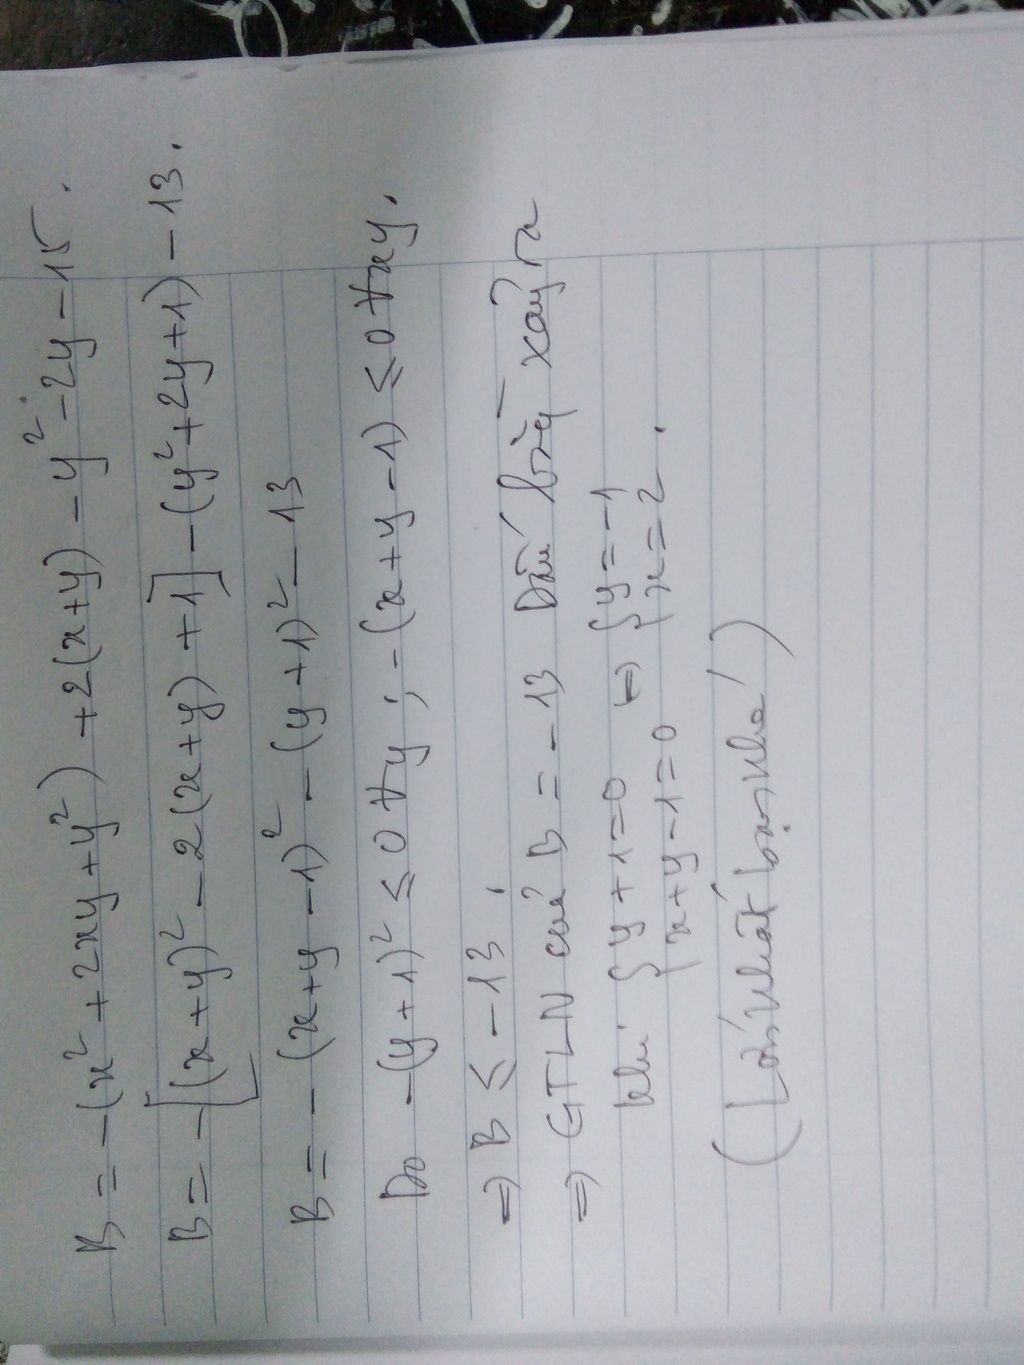 B = -(x² + 2xy + y²) + 2(x+y) - y² - 2y - 15.
B = -[(x+y)² - 2(x+y) + 1] - (y² + 2y + 1) - 13.
B = -(x+y-1)² - (y+1)² - 13
Do -(y+1)² ≤ 0 ∀y ; -(x+y-1) ≤ 0 ∀xy.
⇒ B ≤ -13.
⇒ GTLN của B = -13 Dấu bằng xảy ra
khi { y+1=0 ⇔ { y=-1
x+y-1=0 x=2.
(Lớn nhất bạn nhé)